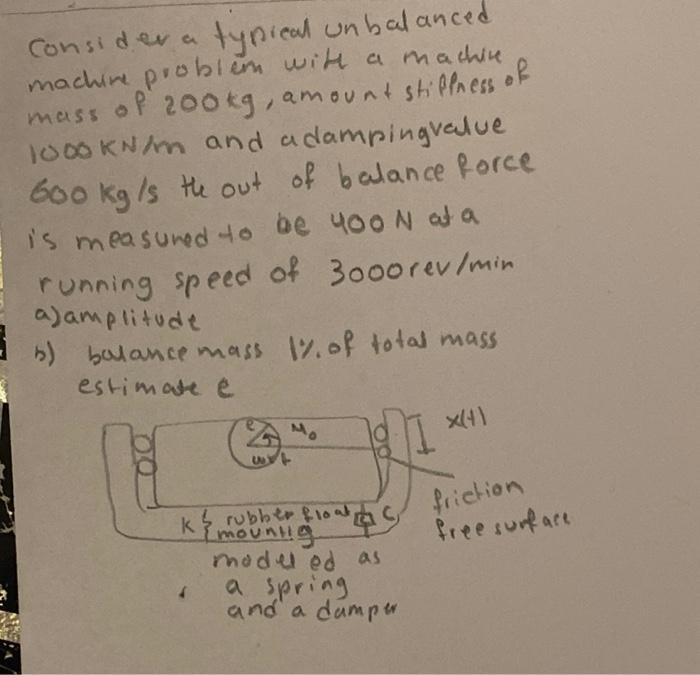 Consider a typical unbalanced
machine problem with a machine
mass of 200kg, amount stiffness of
1000 KN/m and a dampingvalue
600 kg/s the out of balance force
is measured to be 400 N at a
running speed of 3000rev/min
a) amplitude
b) balance mass 1% of total mass
estimate e
e M₀
wrt
x(t)
K rubber float C
mounting
friction
free surface
modeled as
a spring
and a damper